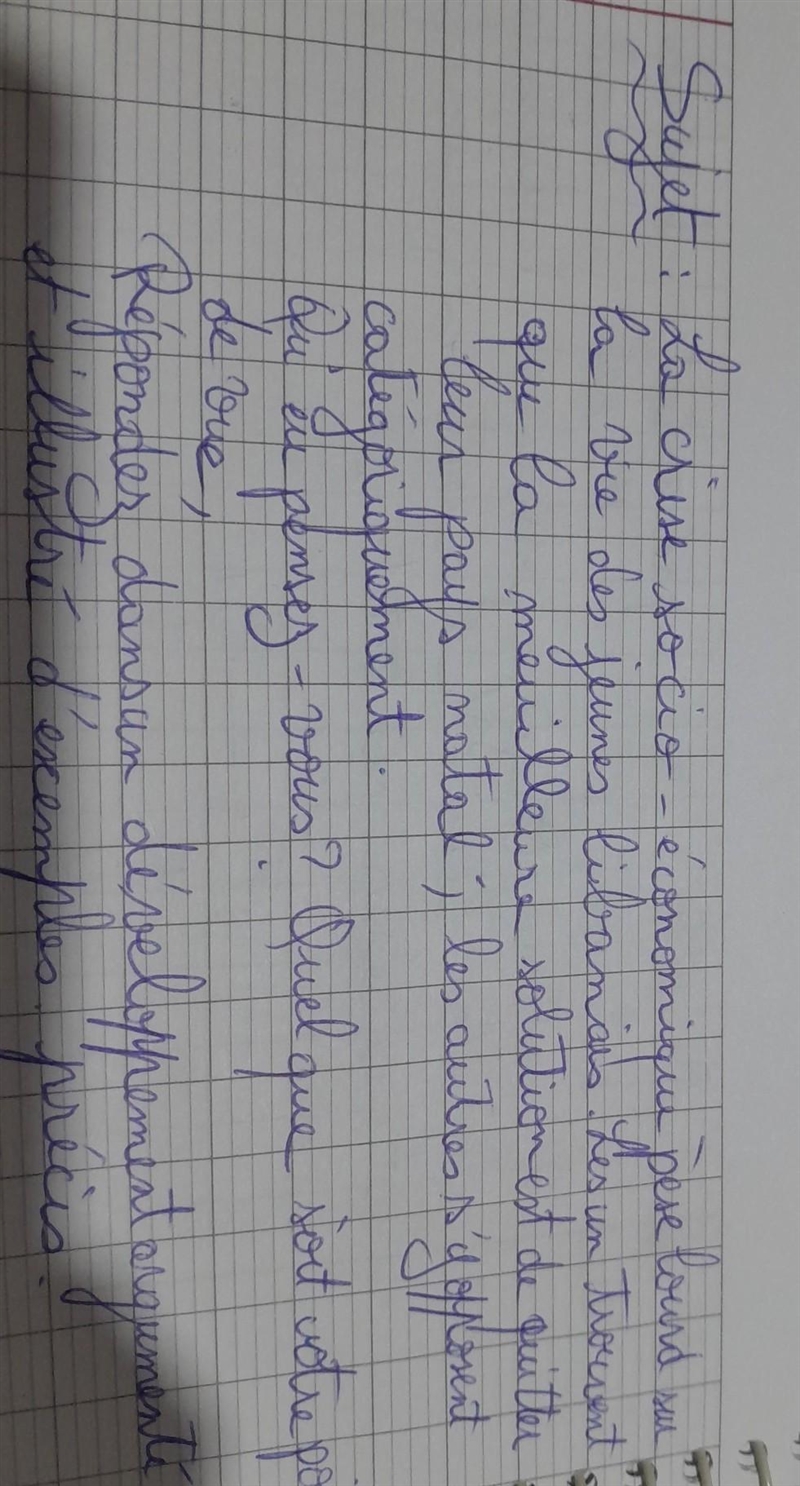 Sujet : La crise socio-économique pèse lourd sur
la vie des jeunes libanais. Les un trouvent
que la meuilleure solution est de quitter
leur pays natal ; les autres s'y opposent
catégoriquement.
Qu'en pensez-vous? Quel que soit votre po
de vue,
Répondez dans un développement argumenté
et illustré d'exemples précis.